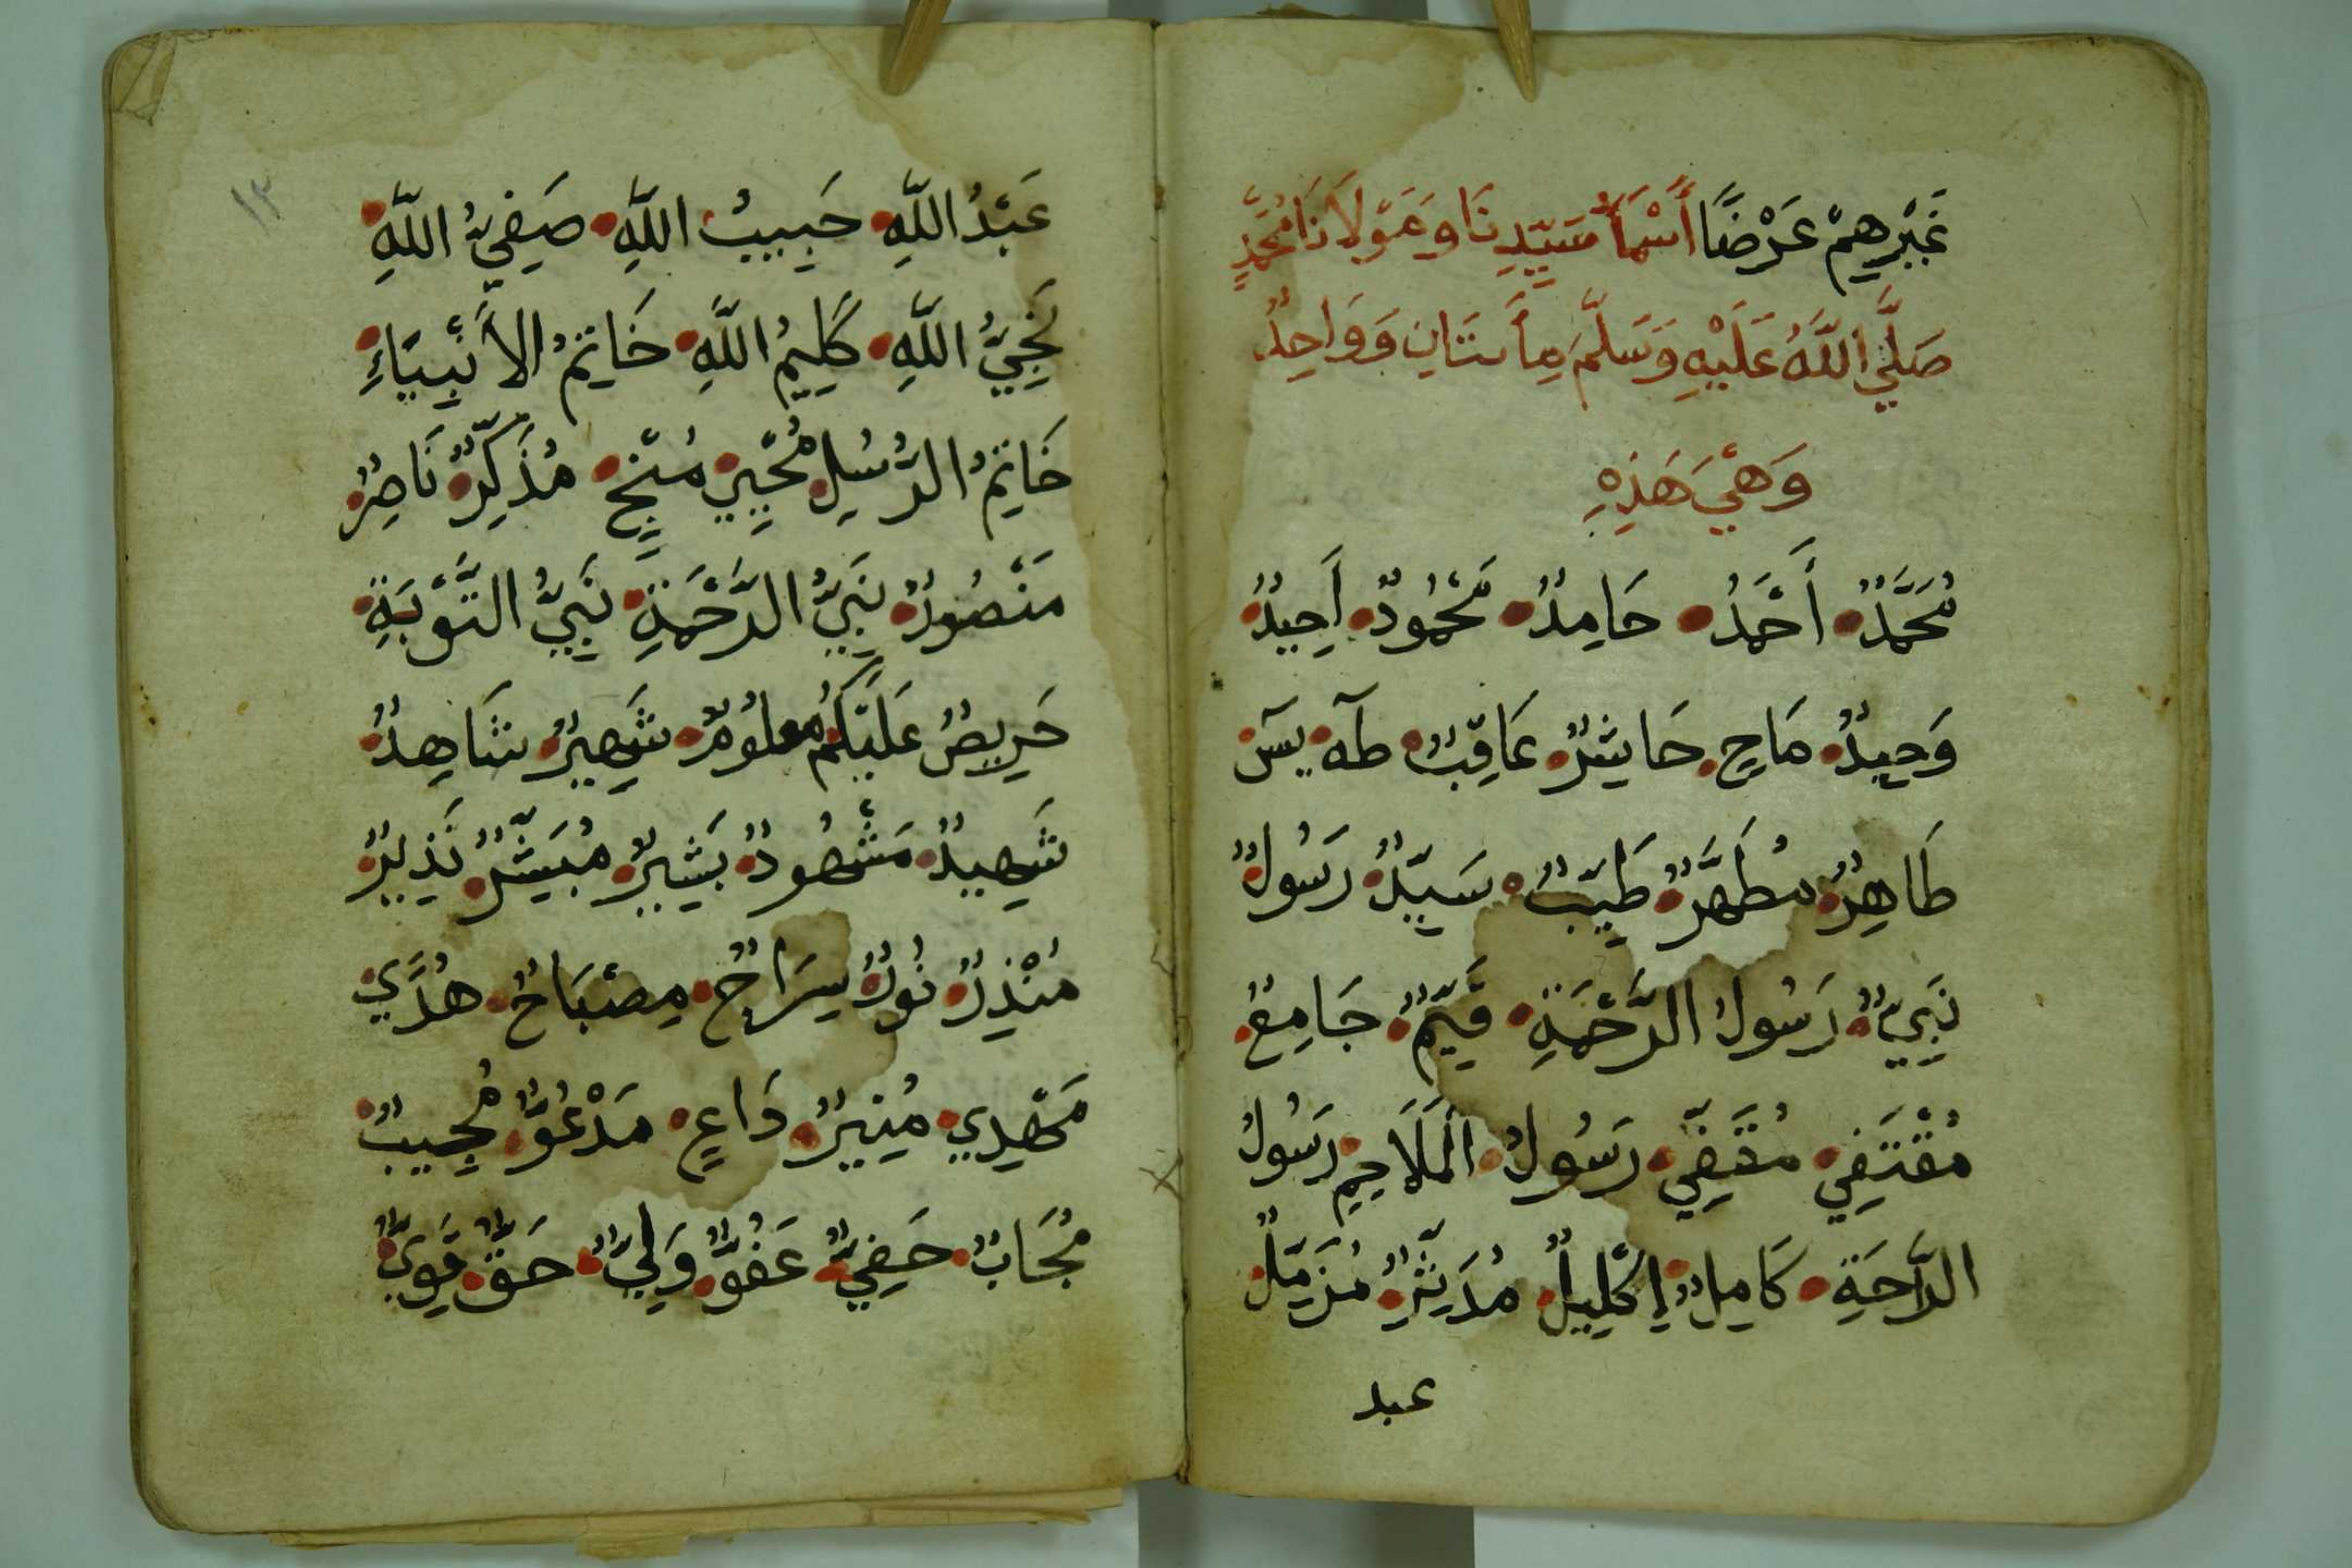 غَيْرِهِمْ عَرْضًا أَسْمَآءُ سَيِّدِنَا وَمَوْلَانَا مُحَمَّدٍ
صَلَّي اللَّهُ عَلَيْهِ وَسَلَّمَ مِأَتَانِ وَوَاحِدٌ
وَهْيَ هَذِهِ
مُحَمَّدٌ أَحْمَدُ حَامِدٌ مَحْمُودٌ أَحِيدٌ
وَحِيدٌ مَاحٍ حَاشِرٌ عَاقِبٌ طٓهٓ يٓسٓ
طَاهِرٌ مُطَهَّرٌ طَيِّبٌ سَيِّدٌ رَسُولٌ
نَبِيٌّ رَسُولُ الرَّحْمَةِ قَيِّمٌ جَامِعٌ
مُقْتَفِي مُقَفِّي رَسُولُ الْمَلَاحِمِ رَسُولُ
الرَّاحَةِ كَامِلٌ اِكْلِيلٌ مُدَثِّرٌ مُزَمِّلٌ
عبد
١٣
عَبْدُ اللَّهِ حَبِيبُ اللَّهِ صَفِيُّ اللَّهِ
نَجِيُّ اللَّهِ كَلِيمُ اللَّهِ خَاتِمُ الْأَنْبِيَاءِ
خَاتِمُ الرُّسُلِ مُحْيِي مُنْجٍ مُذَكِّرٌ نَاصِرٌ
مَنْصُورٌ نَبِيُّ الرَّحْمَةِ نَبِيُّ التَّوْبَةِ
حَرِيصٌ عَلَيْكُمْ معلُومٌ شَهِيرٌ شَاهِدٌ
شَهِيدٌ مَشْهُودٌ بَشِيرٌ مُبَشِّرٌ نَذِيرٌ
مُنْذِرٌ نُورٌ سِرَاجٌ مِصْبَاحٌ هُدًي
مَهْدِي مُنِيرٌ دَاعٍ مَدْعُوٌّ مُجِيبٌ
مُجَابٌ حَفِيٌّ عَفُوٌّ وَلِيٌّ حَقٌّ قَوِيٌّ